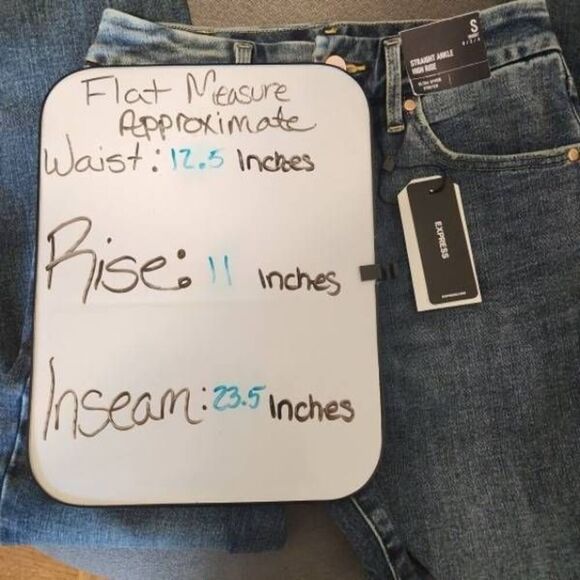 Flat Measure
Approximate
Waist: 12.5 Inches
Rise: 11 Inches
Inseam: 23.5 Inches
S
STRAIGHT ANKLE
HIGH RISE
EXPRESS